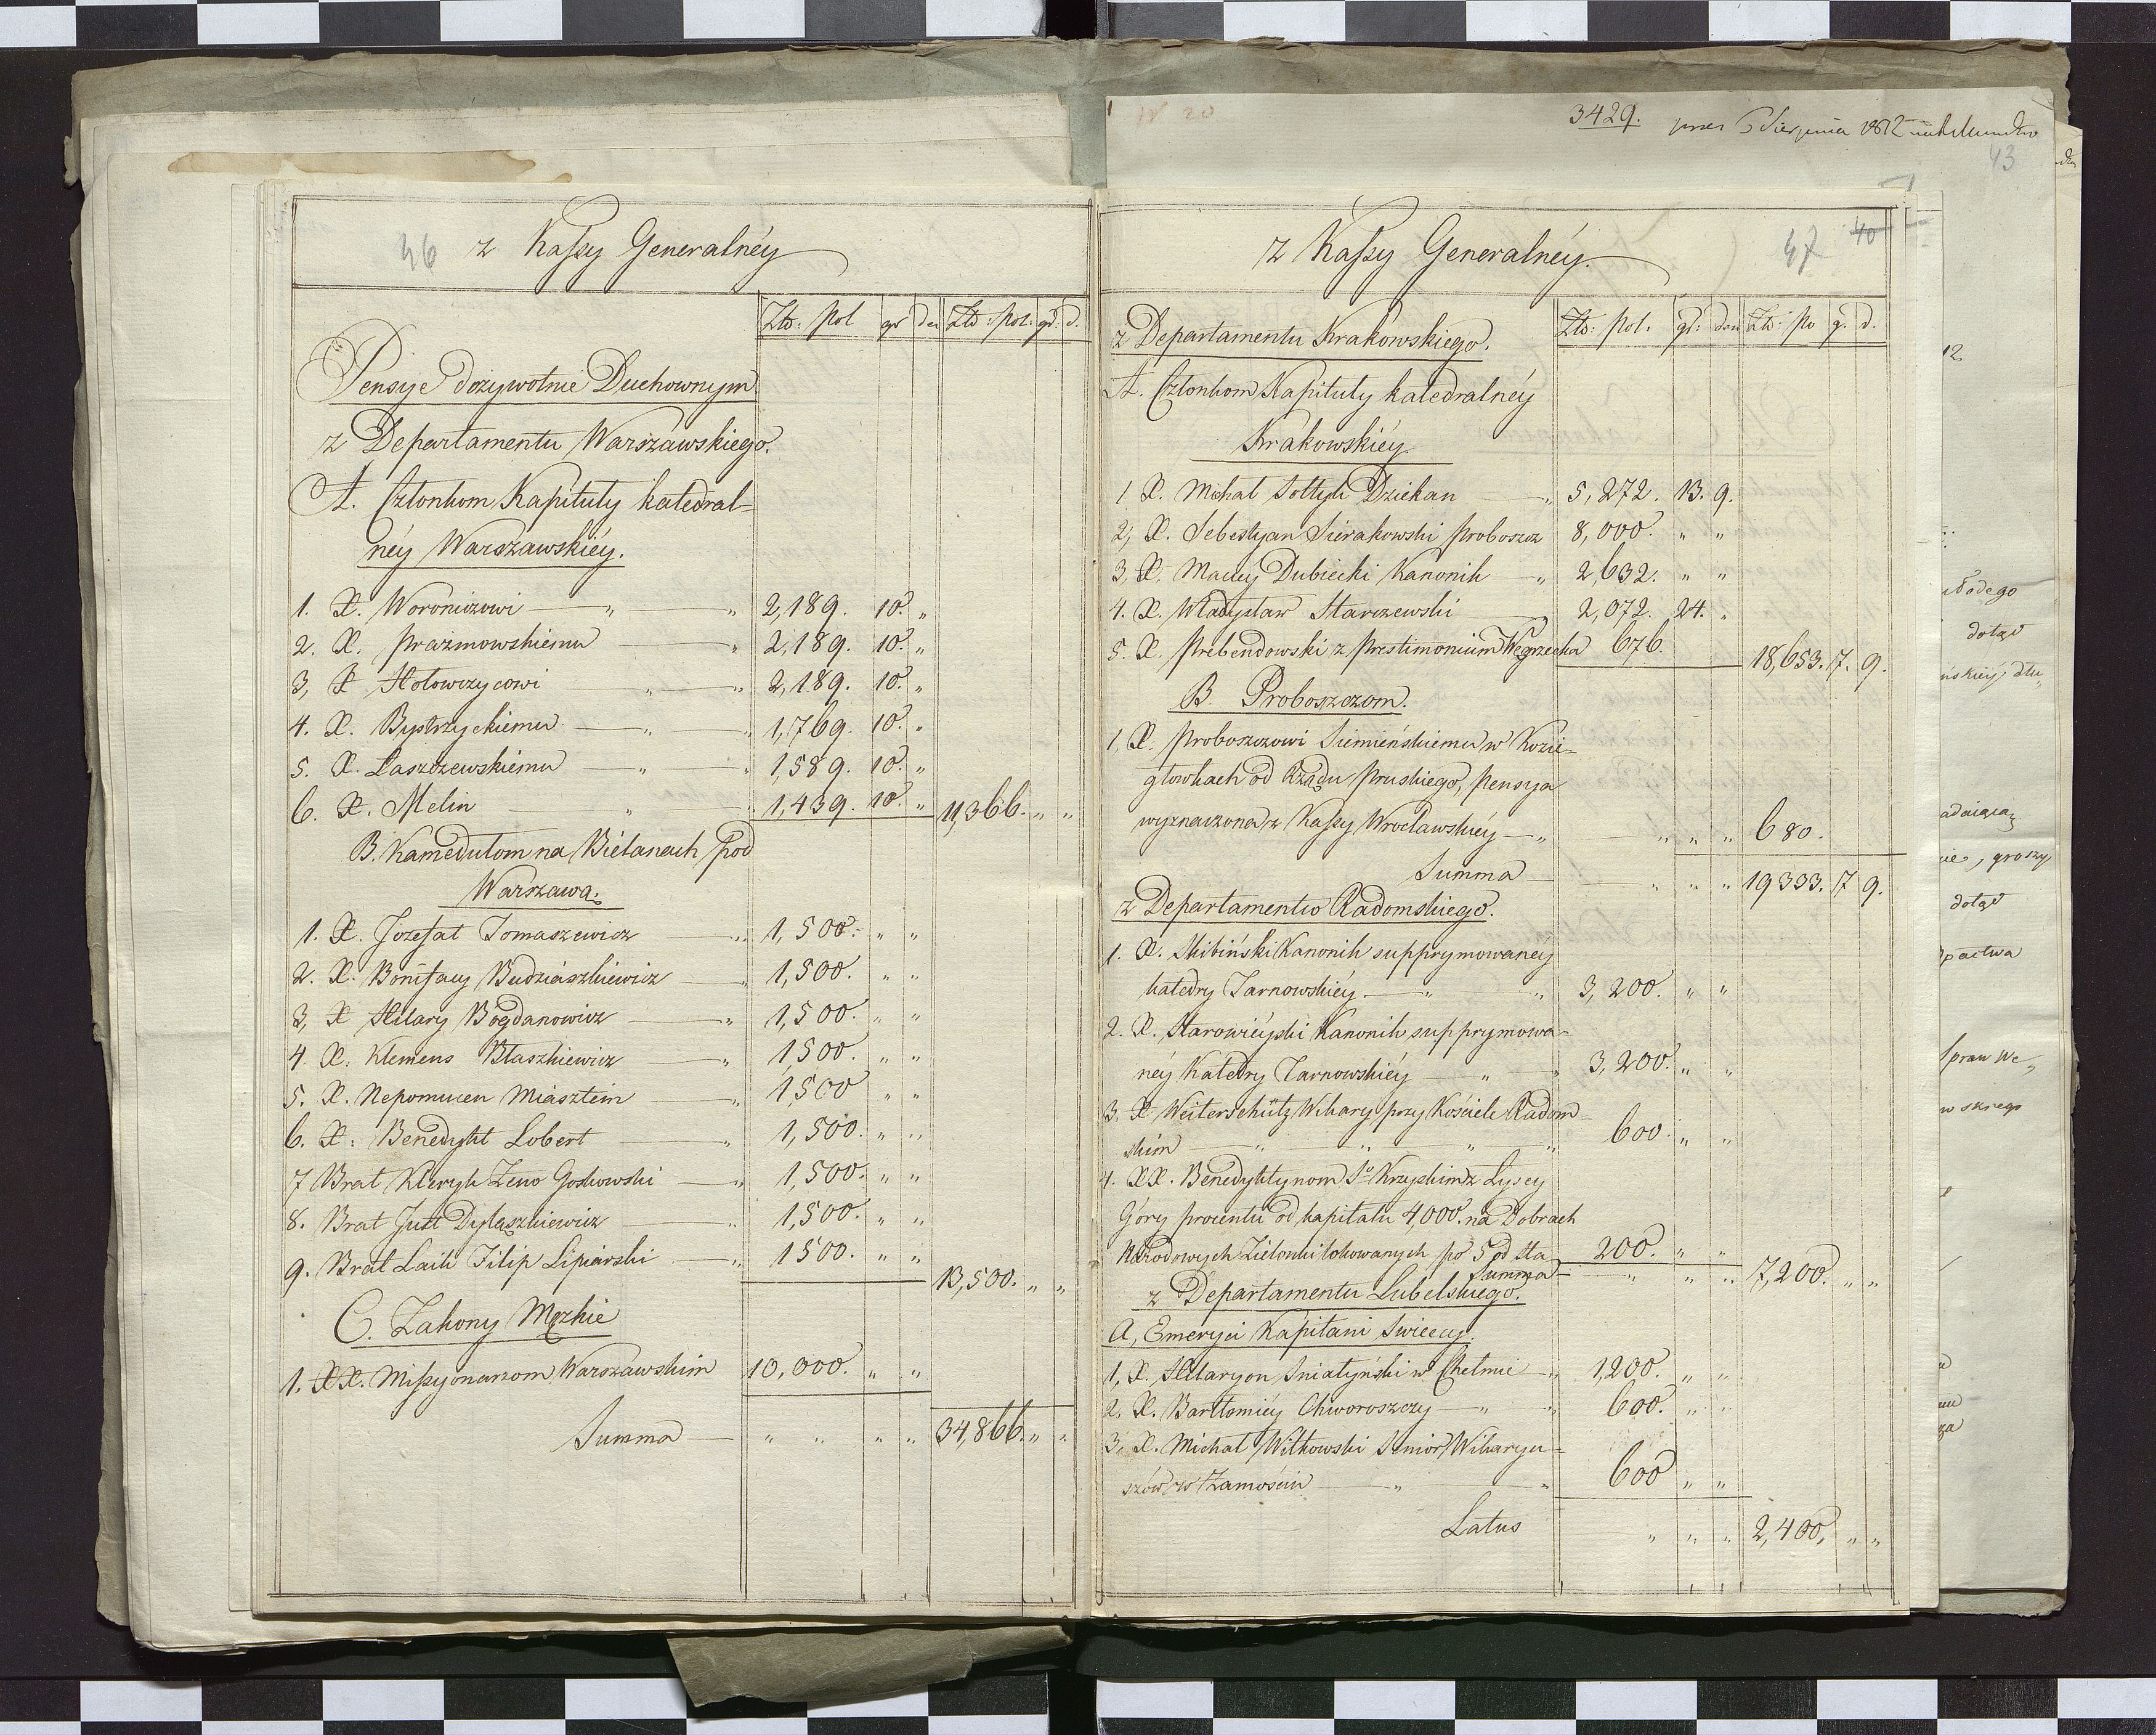 46 z Kassy Generalnéy
Złto: pol gr den Złto: pol: gr d.
Pensye dożywotnie Duchownym
z Departamentu Warszawskiego.
A. Członkom Kapituły katedral=
néy Warszawskiéy.
1. X. Woroniczowi — „ — „ 2,189. 10. „
2. X. Prażmowskiemu — „ 2,189. 10. „
3, X Hołowczycowi „ — „ 2,189. 10. „
4. X. Bystrzyckiemu — „ — „ 1,769. 10. „
5. X. Laszczewskiemu „ — „ 1,589. 10. „
6. X. Melin — „ — „ 1,439. 10. „ 11,366. „ „
B. Kamedułom na Biélanach pod
Warszawą.
1. X. Jozefat Tomaszewicz — „ 1,500. „ „
2. X. Bonifacy Budziaszkiewicz — „ 1,500. „ „
3, X Hilary Bogdanowicz — „ 1,500. „ „
4. X. Klemens Błaszkiewicz — „ 1,500. „ „
5. X. Nepomucen Miasztein — „ 1,500 „ „
6. X. Benedykt Lobert — „ 1,500. „ „
7 Brat Kleryk Zeno Goskowski — „ 1,500. „ „
8. Brat Just Dylaszkiewicz — „ 1,500. „ „
9. Brat Laik Filip Lipiarski — „ 1500. „ „
13,500. „ „
C. Zakony Męzkie
1. XX. Missyonarzom Warszawskim 10,000. „ „
Summa — „ „ „ „ 34,866. „ „
N 20
3429. 1812
43
z Kassy Generalnéy. 47 40
Złto: pol. gr: den Złto: po g. d.
z Departamentu Krakowskiego.
A. Członkom Kapituły katedralnéy
Krakowskiéy
1 X. Michał Sołtyk Dziekan — „ 5,272. 13. 9.
2, X. Sebestyan Sierakowski Proboszcz 8,000. „ „
3, X. Maciéy Dubiecki Kanonik — „ 2,632. „ „
4. X. Władysław Starczewski — „ 2,072. 24. „
5. X. Prebendowski z Prestimonium Węgrzecka 676.
18,653. 7. 9.
B. Proboszczom.
1, X. Proboszczowi Siemieńskiemu w Kozie=
głowkach od Rządu Pruskiego, pensya
wyznaczona z Kassy Wrocławskiéy — „ „ „ „ 680.
Summa — „ „ „ 19333. 7 9.
z Departamentu Radomskiego.
1. X. Skibiński Kanonik supprymowanéy
katedry Tarnowskiéy — „ „ 3,200. „ „
2. X. Starowiéyski Kanonik supprymowa=
néy Katedry Tarnowskiéy — „ — „ 3,200. „ „
3. X Weiterschütz Wikary przy Kościele Radom=
skim — „ „ „ „ 600. „ „
4. XX. Benedyktynom So Krzyskim z Lysey
Góry procentu od kapitału 4,000. na Dobrach
Narodowych Zielonki lokowanych po 5 od sta 200. „ „
Summa — „ „ „ 7,200. „ „
z Departamentu Lubelskiego.
A, Emeryci Kapłani Swieccy.
1, X. Hilaryon Sniatyński w Chełmie — „ 1,200. „ „
2. X. Bartłomiéy Chworoszczy — „ „ 600. „ „
3. X. Michał Witkowski Senior Wikaryu=
szów w Zamościu — „ „ 600 „ „
Latus „ „ „ 2,400. „ „
12
dotąd
groszy
dotąd